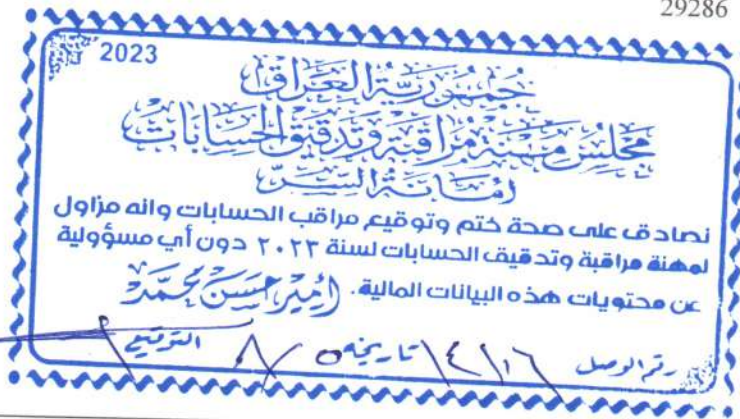 29286
2023
جمهورية العراق
مجلس مهنة مراقبة وتدقيق الحسابات
امانة السر
نصادق على صحة ختم وتوقيع مراقب الحسابات وانه مزاول
لمهنة مراقبة وتدقيق الحسابات لسنة ٢٠٢٣ دون أي مسؤولية
عن محتويات هذه البيانات المالية. (أمير حسن محمد
رقم الوصل تاريخه ٥ / ٨ التوقيع